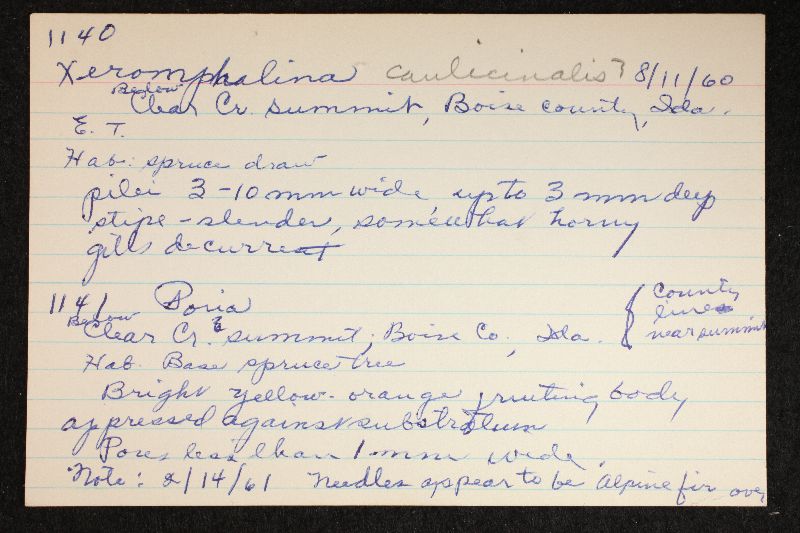 1140
Xeromphalina caulicinalis? 8/11/60
Below
Clear Cr. summit, Boise county, Ida.
E. T.
Hab: spruce draw
pilei 3-10 mm wide, up to 3 mm deep
stipe - slender, somewhat horny
gills decurrent
1141 Poria
Below
Clear Cr. summit, Boise Co., Ida. { County lines near summit
Hab. Base spruce tree
Bright yellow-orange fruiting body
appressed against substratum
Pores less than 1 mm wide.
Note: 2/14/61 Needles appear to be Alpine fir over